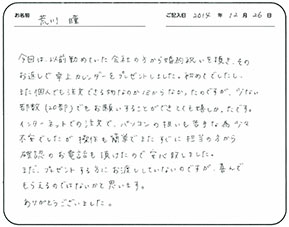 お名前 荒川 瞳 ご記入日 2014 年 12 月 26 日
今回は、以前勤めていた会社の方から婚約祝いを頂き、その
お返しで卓上カレンダーをプレゼントしました。初めてでしたし、
また個人でも注文できるものなのか分からなかったのですが、少ない
部数(20部)でもお願いすることができてとても嬉しかったです。
インターネットでの注文で、パソコンの扱いも苦手な為少々
不安でしたが操作も簡単でまたすぐに担当の方から
確認のお電話も頂けたので安心致しました。
まだ、プレゼントする方にお渡ししていないのですが、喜んで
もらえるのではないかと思います。
ありがとうございました。